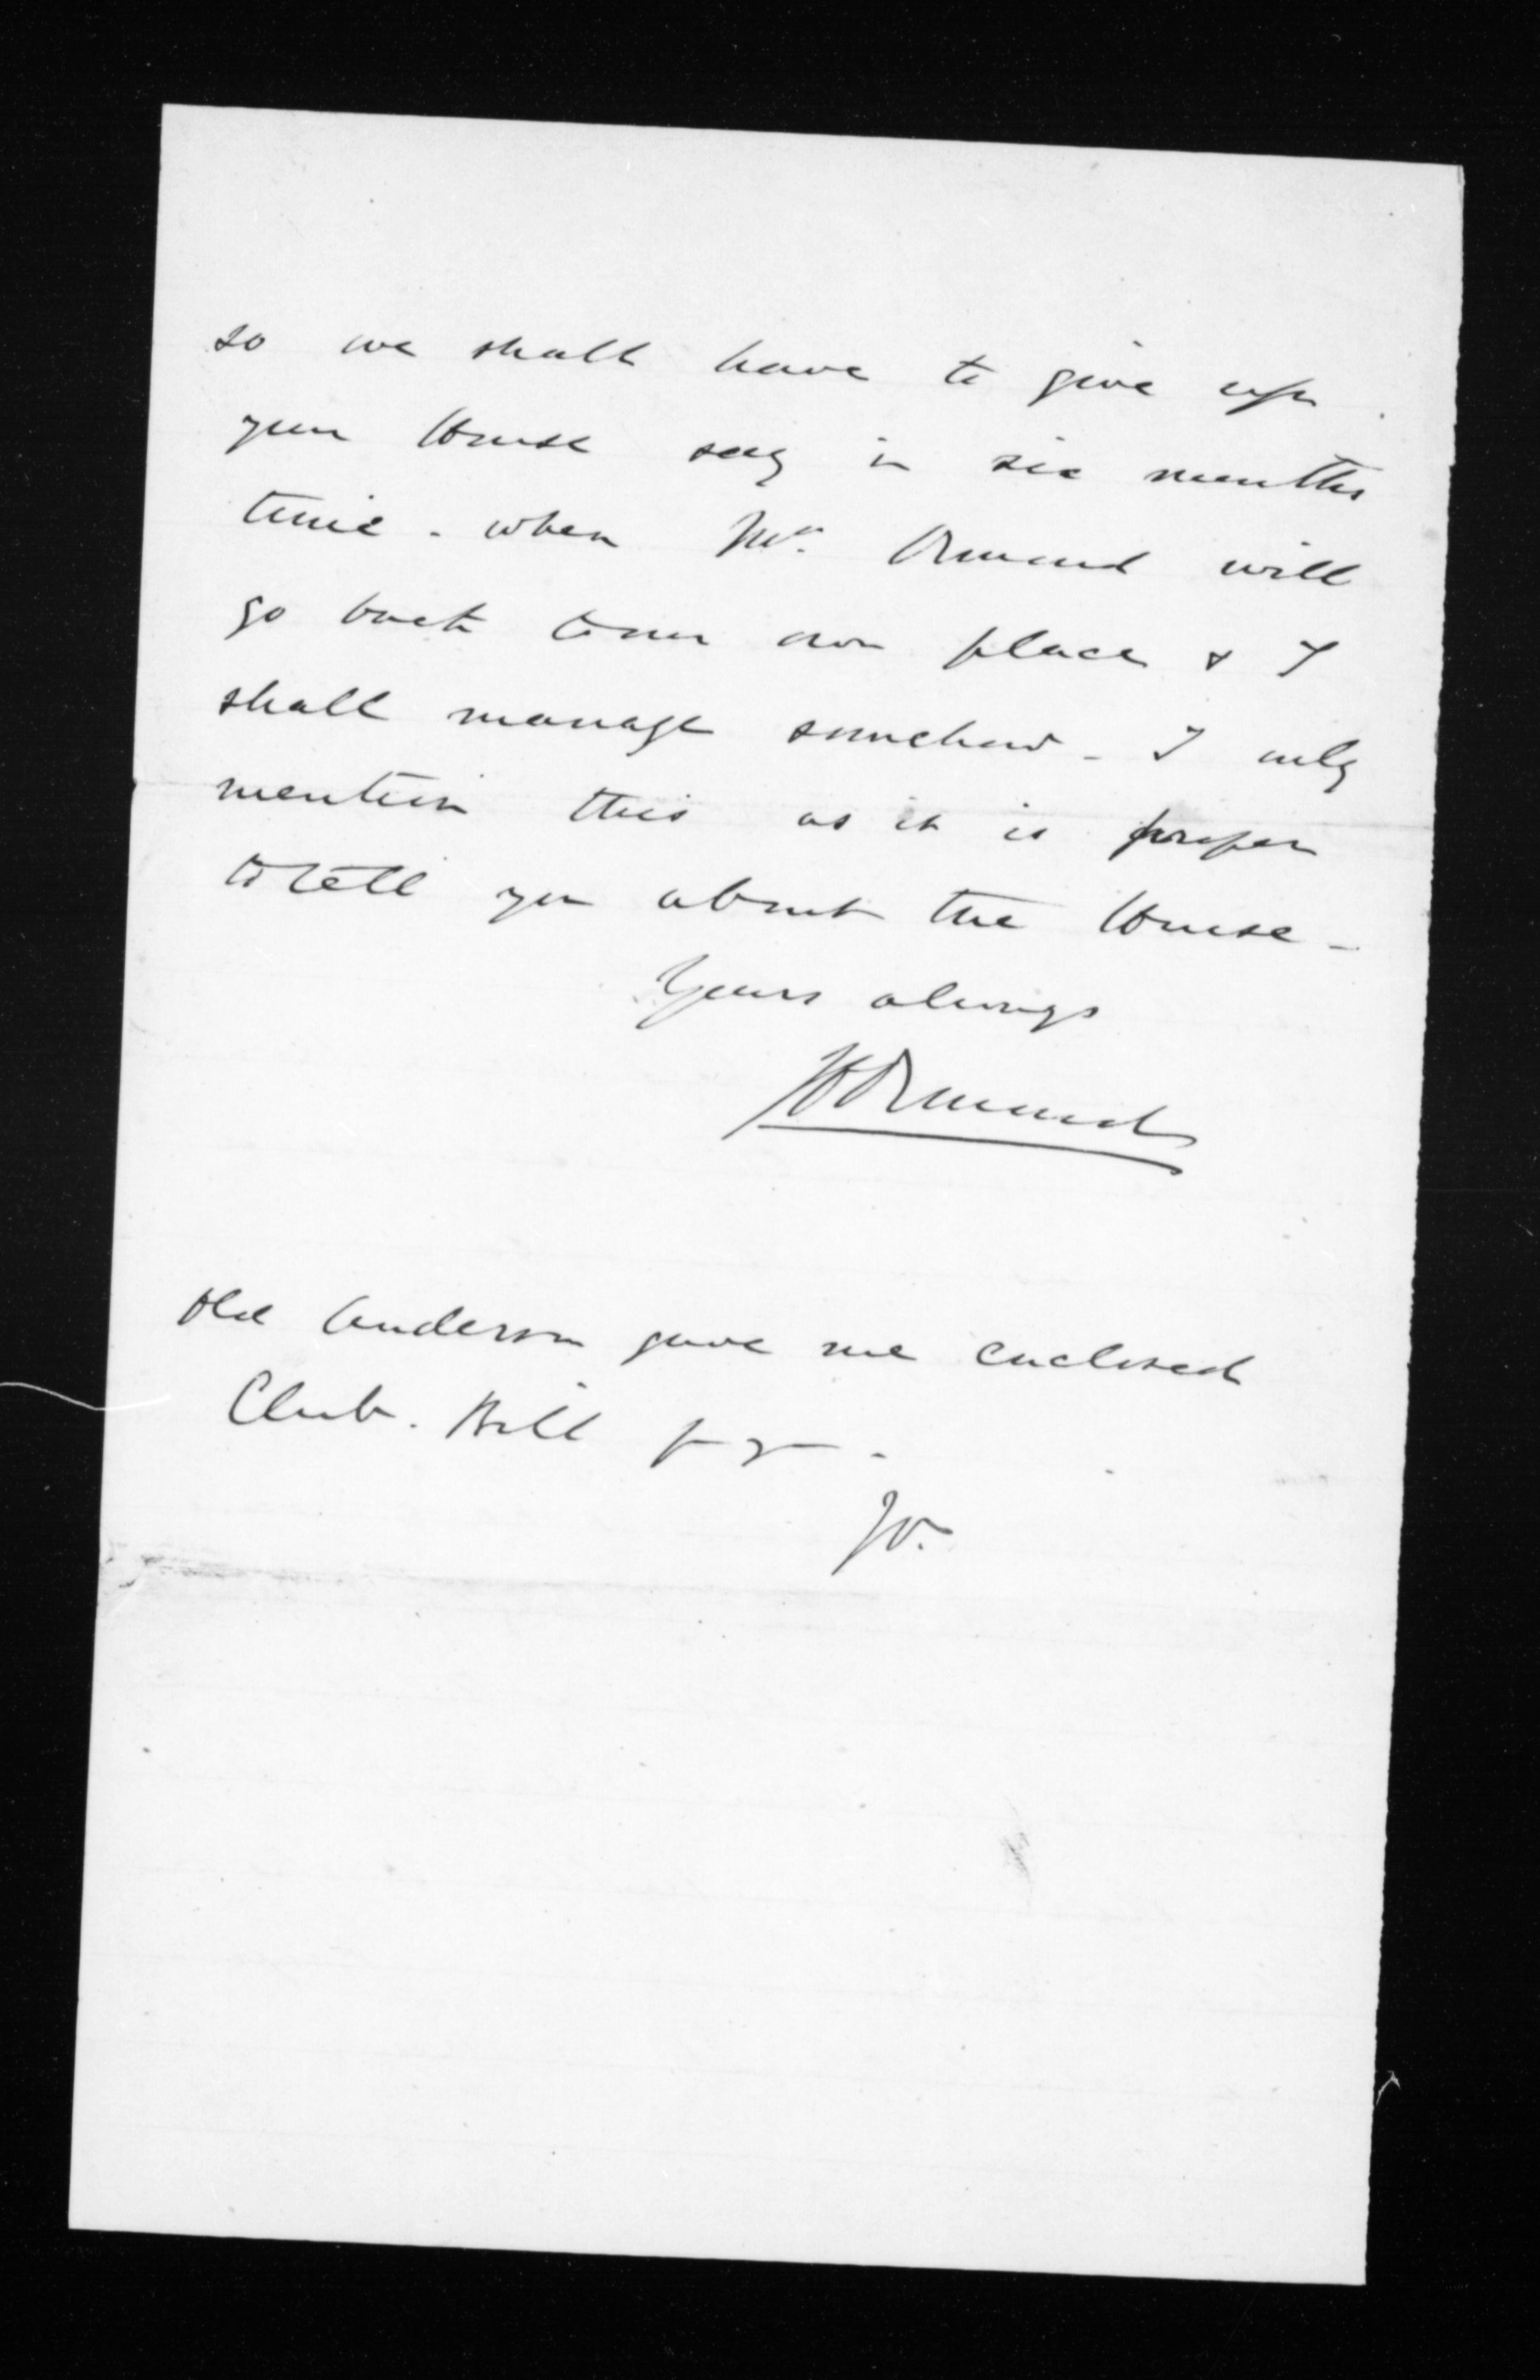 so we shall have to give up
your House say in six months
time. when Mr. Ormond will
go back to our own place & I
shall manage somehow - I only
mention this as it is proper
to tell you about the House -
Yours always
JDOrmond
Old Anderson gave me enclosed
Club. Bill for you -